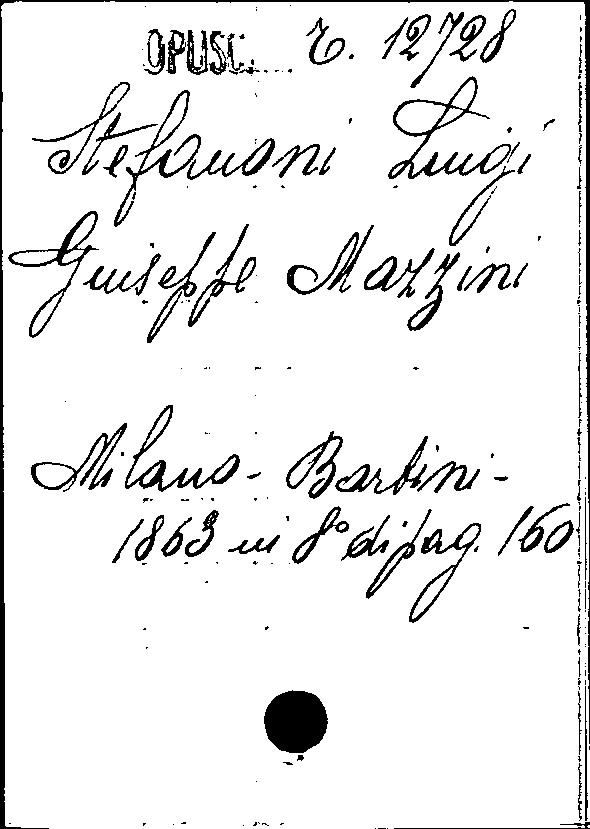 OPUSC. E. 12728
Stefanoni Luigi
Giuseppe Mazzini
Milano - Barbini -
1863 in 8° di pag. 160